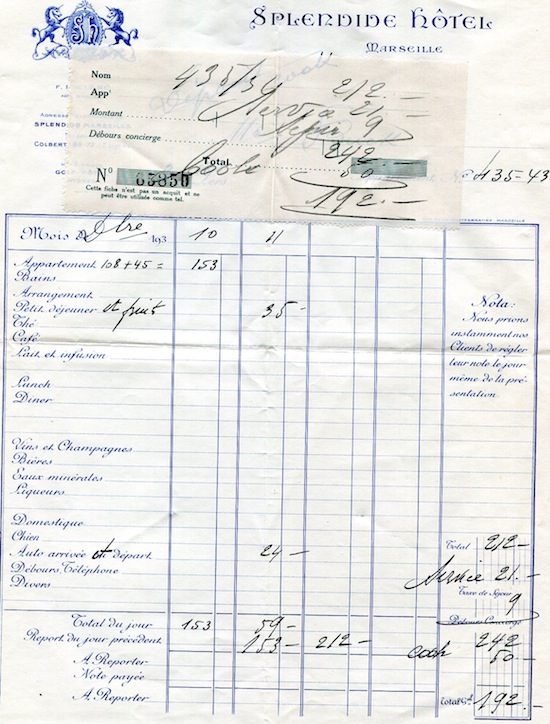 SPLENDIDE HÔTEL
MARSEILLE
Nom 435/34 212.-
App.t 21.-
Montant 9
Débours concierge 242.-
Total 50
N° 03850 192.-
Cette fiche n'est pas un acquit et ne
peut être utilisée comme tel.
435-43
Mois de Xbre 193 10 11
Appartement 108+45= 153
Bains
Arrangement
Petit déjeuner et fruit 35-
Thé
Café
Lait et infusion
Lunch
Diner
Vins et Champagnes
Bières
Eaux minérales
Liqueurs
Domestique
Chien
Auto arrivée et départ 24-
Débours, Téléphone
Divers
Total du jour 153 59-
Report du jour précédent 153- 212-
A Reporter
Note payée
A Reporter
Nota:
Nous prions
instamment nos
Clients de régler
leur note le jour
même de la pré-
sentation
Total 212-
Service 21.-
Taxe de Séjour
9
Débours Concierge
242
50-
Total Gal 192.-